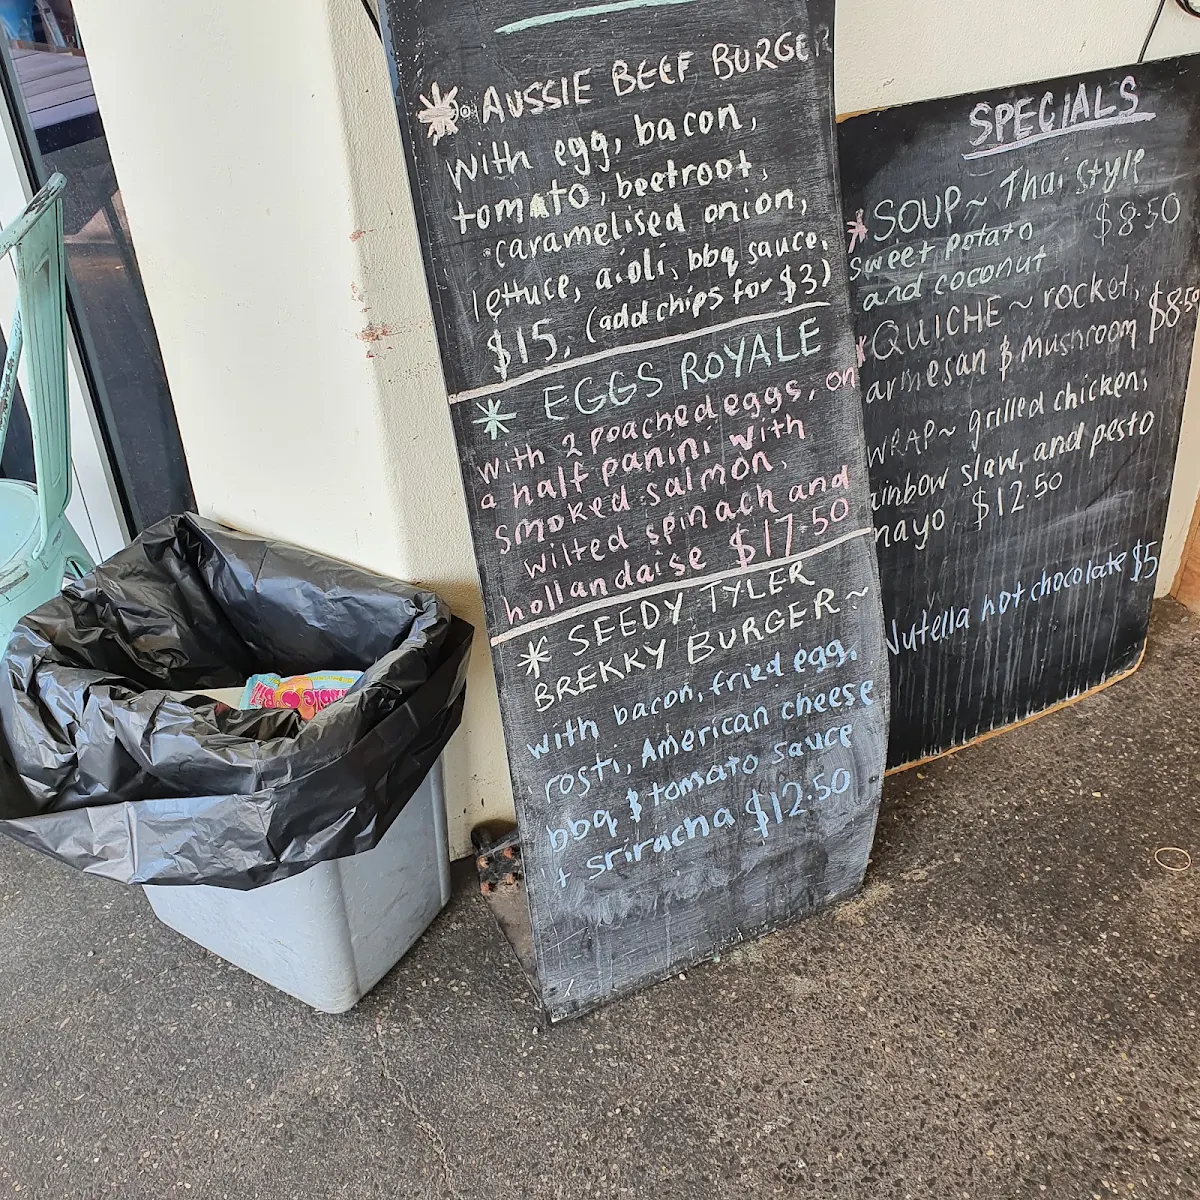 AUSSIE BEEF BURGER
with egg, bacon,
tomato, beetroot,
caramelised onion,
lettuce, aioli, bbq sauce,
$15, (add chips for $3)
EGGS ROYALE
with 2 poached eggs, on
a half panini with
smoked salmon,
wilted spinach and
hollandaise $17.50
SEEDY TYLER
BREKKY BURGER~
with bacon, fried egg,
rosti, American cheese
bbq $ tomato sauce
+ sriracha $12.50
SPECIALS
SOUP~ Thai style
sweet potato $8.50
and coconut
QUICHE ~ rocket, $8.50
armesan $ mushroom
WRAP~ grilled chicken,
ainbow slaw, and pesto
mayo $12.50
Nutella hot chocolate $5